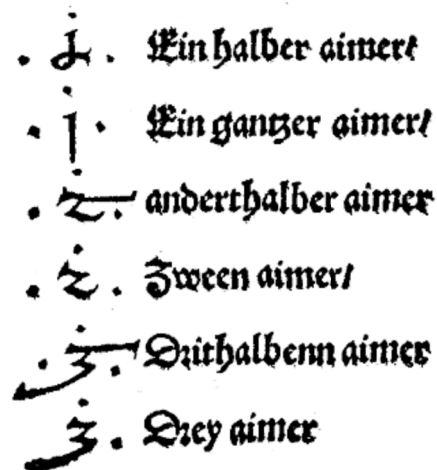 Ein halber aimer/
Ein gantzer aimer/
anderthalber aimer
2. Zween aimer/
Drithalbenn aimer
3. Drey aimer